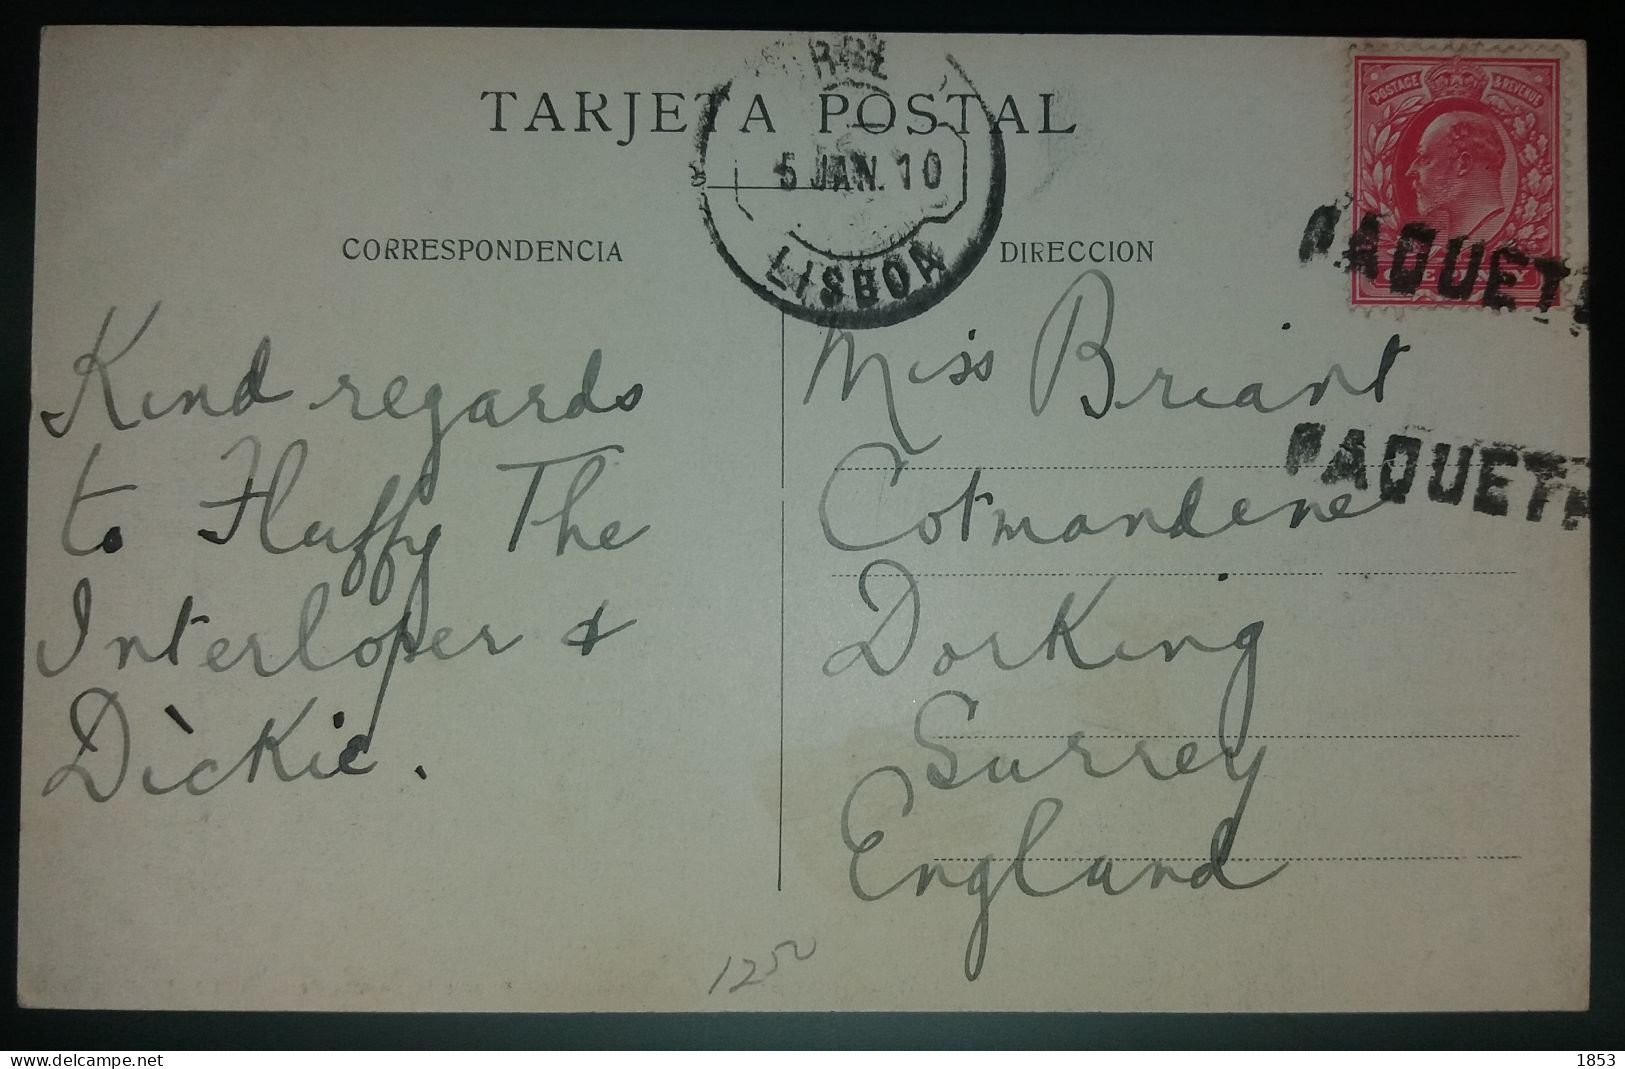 TARJETA POSTAL
5 JAN. 10
LISBOA
POSTAGE & REVENUE
CORRESPONDENCIA
DIRECCION
PAQUETE
PAQUETE
Kind regards
to Fluffy The
Interloper &
Dickie.
Miss Briant
Cotmandene
Dorking
Surrey
England
1250
www.delcampe.net
1853